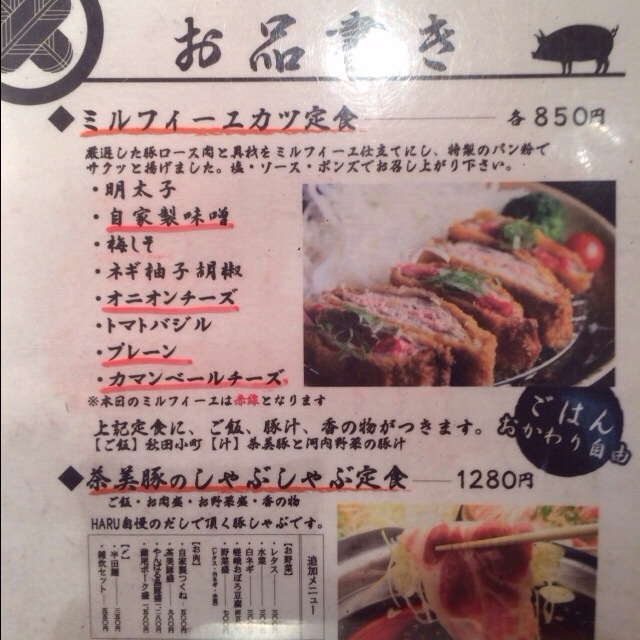 お品書き
◆ミルフィーエカツ定食 各850円
厳選した豚ロース肉と具材をミルフィーエ仕立てにし、特製のパン粉で
サクッと揚げました。塩・ソース・ポンズでお召し上がり下さい。
・明太子
・自家製味噌
・梅しそ
・ネギ柚子胡椒
・オニオンチーズ
・トマトバジル
・プレーン
・カマンベールチーズ
※本日のミルフィーエは赤線となります
上記定食に、ご飯、豚汁、香の物がつきます。
【ご飯】秋田小町【汁】茶美豚と河内野菜の豚汁
ごはん
おかわり自由
◆茶美豚のしゃぶしゃぶ定食 1280円
ご飯・お肉盛・お野菜盛・香の物
HARU自慢のだしで頂く豚しゃぶです。
追加メニュー
【お野菜】
・レタス
・水菜
・白ネギ
・嵯峨おぼろ豆腐
・野菜盛
【お肉】
・自家製つくね
・茶美豚盛
・半田麺
・雑炊セット